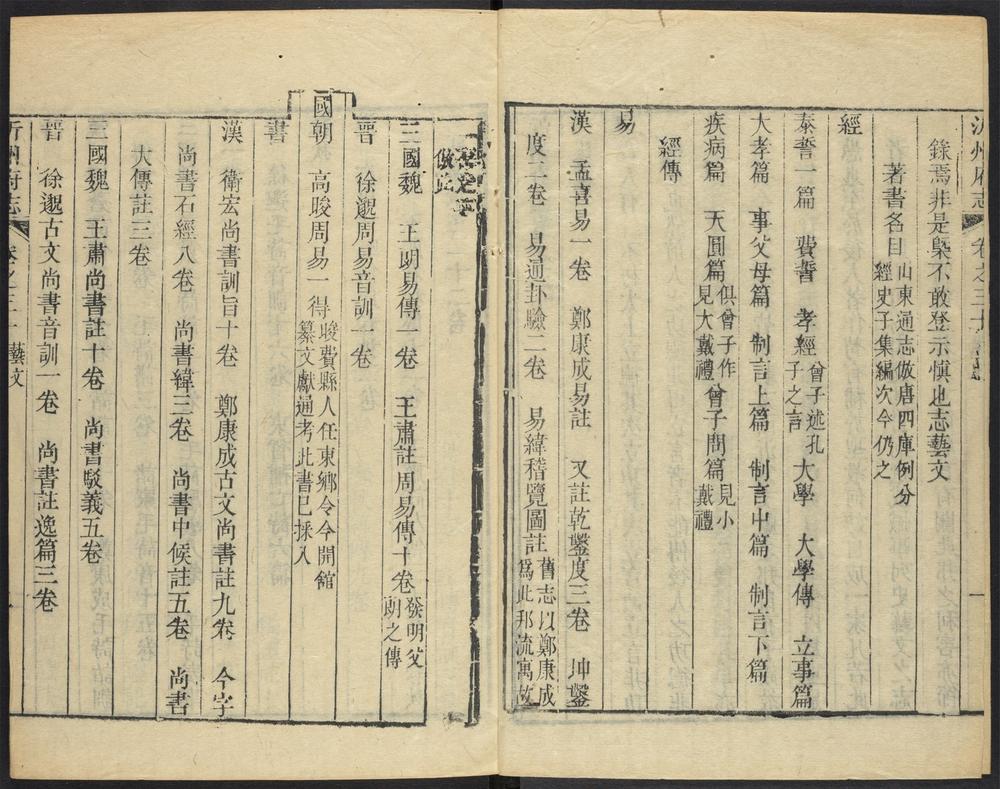 沂州府志 卷之三十 藝文
錄焉非是槩不敢登示愼也志藝文
著書各目 山東通志倣唐四庫例分經史子集編次今仍之
經
泰誓一篇 費誓 孝經 曾子述孔子之言 大學 大學傳 立事篇
大孝篇 事父母篇 制言上篇 制言中篇 制言下篇
疾病篇 天圓篇 俱曾子作見大戴禮 曾子問篇 見小戴禮
經傳
易
漢 孟喜易一卷 鄭康成易註 又註乾鑿度三卷 坤鑿
度二卷 易通卦驗二卷 易緯稽覽圖註 舊志以鄭康成爲此邦流寓故
倣此
三國魏 王朗易傳一卷 王肅註周易傳十卷 發明父朗之傳
晉 徐邈周易音訓一卷
國朝 高晙周易一得 晙費縣人任東鄉令今開館纂文獻通考此書已採入
書
漢 衛宏尚書訓旨十卷 鄭康成古文尚書註九卷 今字
尚書石經八卷 尚書緯三卷 尚書中候註五卷 尚書
大傳註三卷
三國魏 王肅尚書註十卷 尚書駁義五卷
晉 徐邈古文尚書音訓一卷 尚書註逸篇三卷
沂州府志 卷之三十 藝文